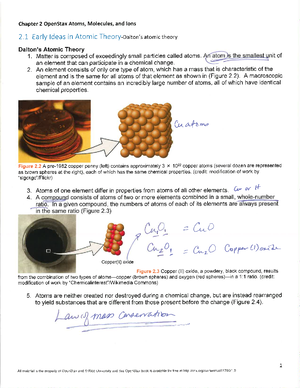 Chapter 2 OpenStax Atoms, Molecules, and Ions
2.1 Early Ideas in Atomic Theory-Dalton's atomic theory
Dalton's Atomic Theory
1. Matter is composed of exceedingly small particles called atoms. An atom is the smallest unit of
an element that can participate in a chemical change.
2. An element consists of only one type of atom, which has a mass that is characteristic of the
element and is the same for all atoms of that element as shown in (Figure 2.2). A macroscopic
sample of an element contains an incredibly large number of atoms, all of which have identical
chemical properties.
Cu atoms
Figure 2.2 A pre-1982 copper penny (left) contains approximately 3 × 10²² copper atoms (several dozen are represented
as brown spheres at the right), each of which has the same chemical properties. (credit: modification of work by
"slgckgc"/Flickr)
3. Atoms of one element differ in properties from atoms of all other elements. Cu or H
4. A compound consists of atoms of two or more elements combined in a small, whole-number
ratio. In a given compound, the numbers of atoms of each of its elements are always present
in the same ratio (Figure 2.3)
= CuO
= Cu₂O Copper(I) oxide
Copper(II) oxide
Figure 2.3 Copper (II) oxide, a powdery, black compound, results
from the combination of two types of atoms—copper (brown spheres) and oxygen (red spheres)—in a 1:1 ratio. (credit:
modification of work by "Chemicalinterest"/Wikimedia Commons)
5. Atoms are neither created nor destroyed during a chemical change, but are instead rearranged
to yield substances that are different from those present before the change (Figure 2.4).
Law of mass conservation
1